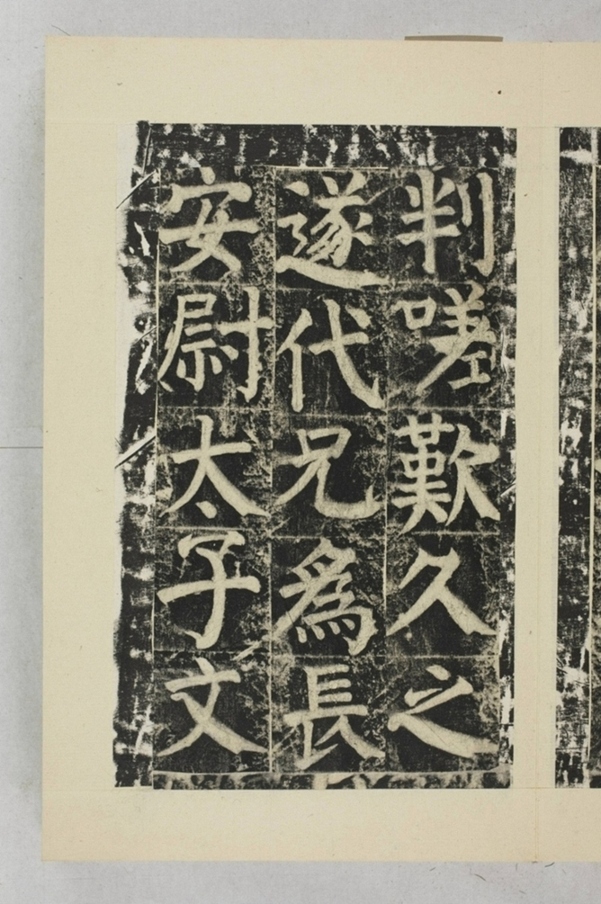 判嗟歎久之
遂代兄為長
安尉太子文